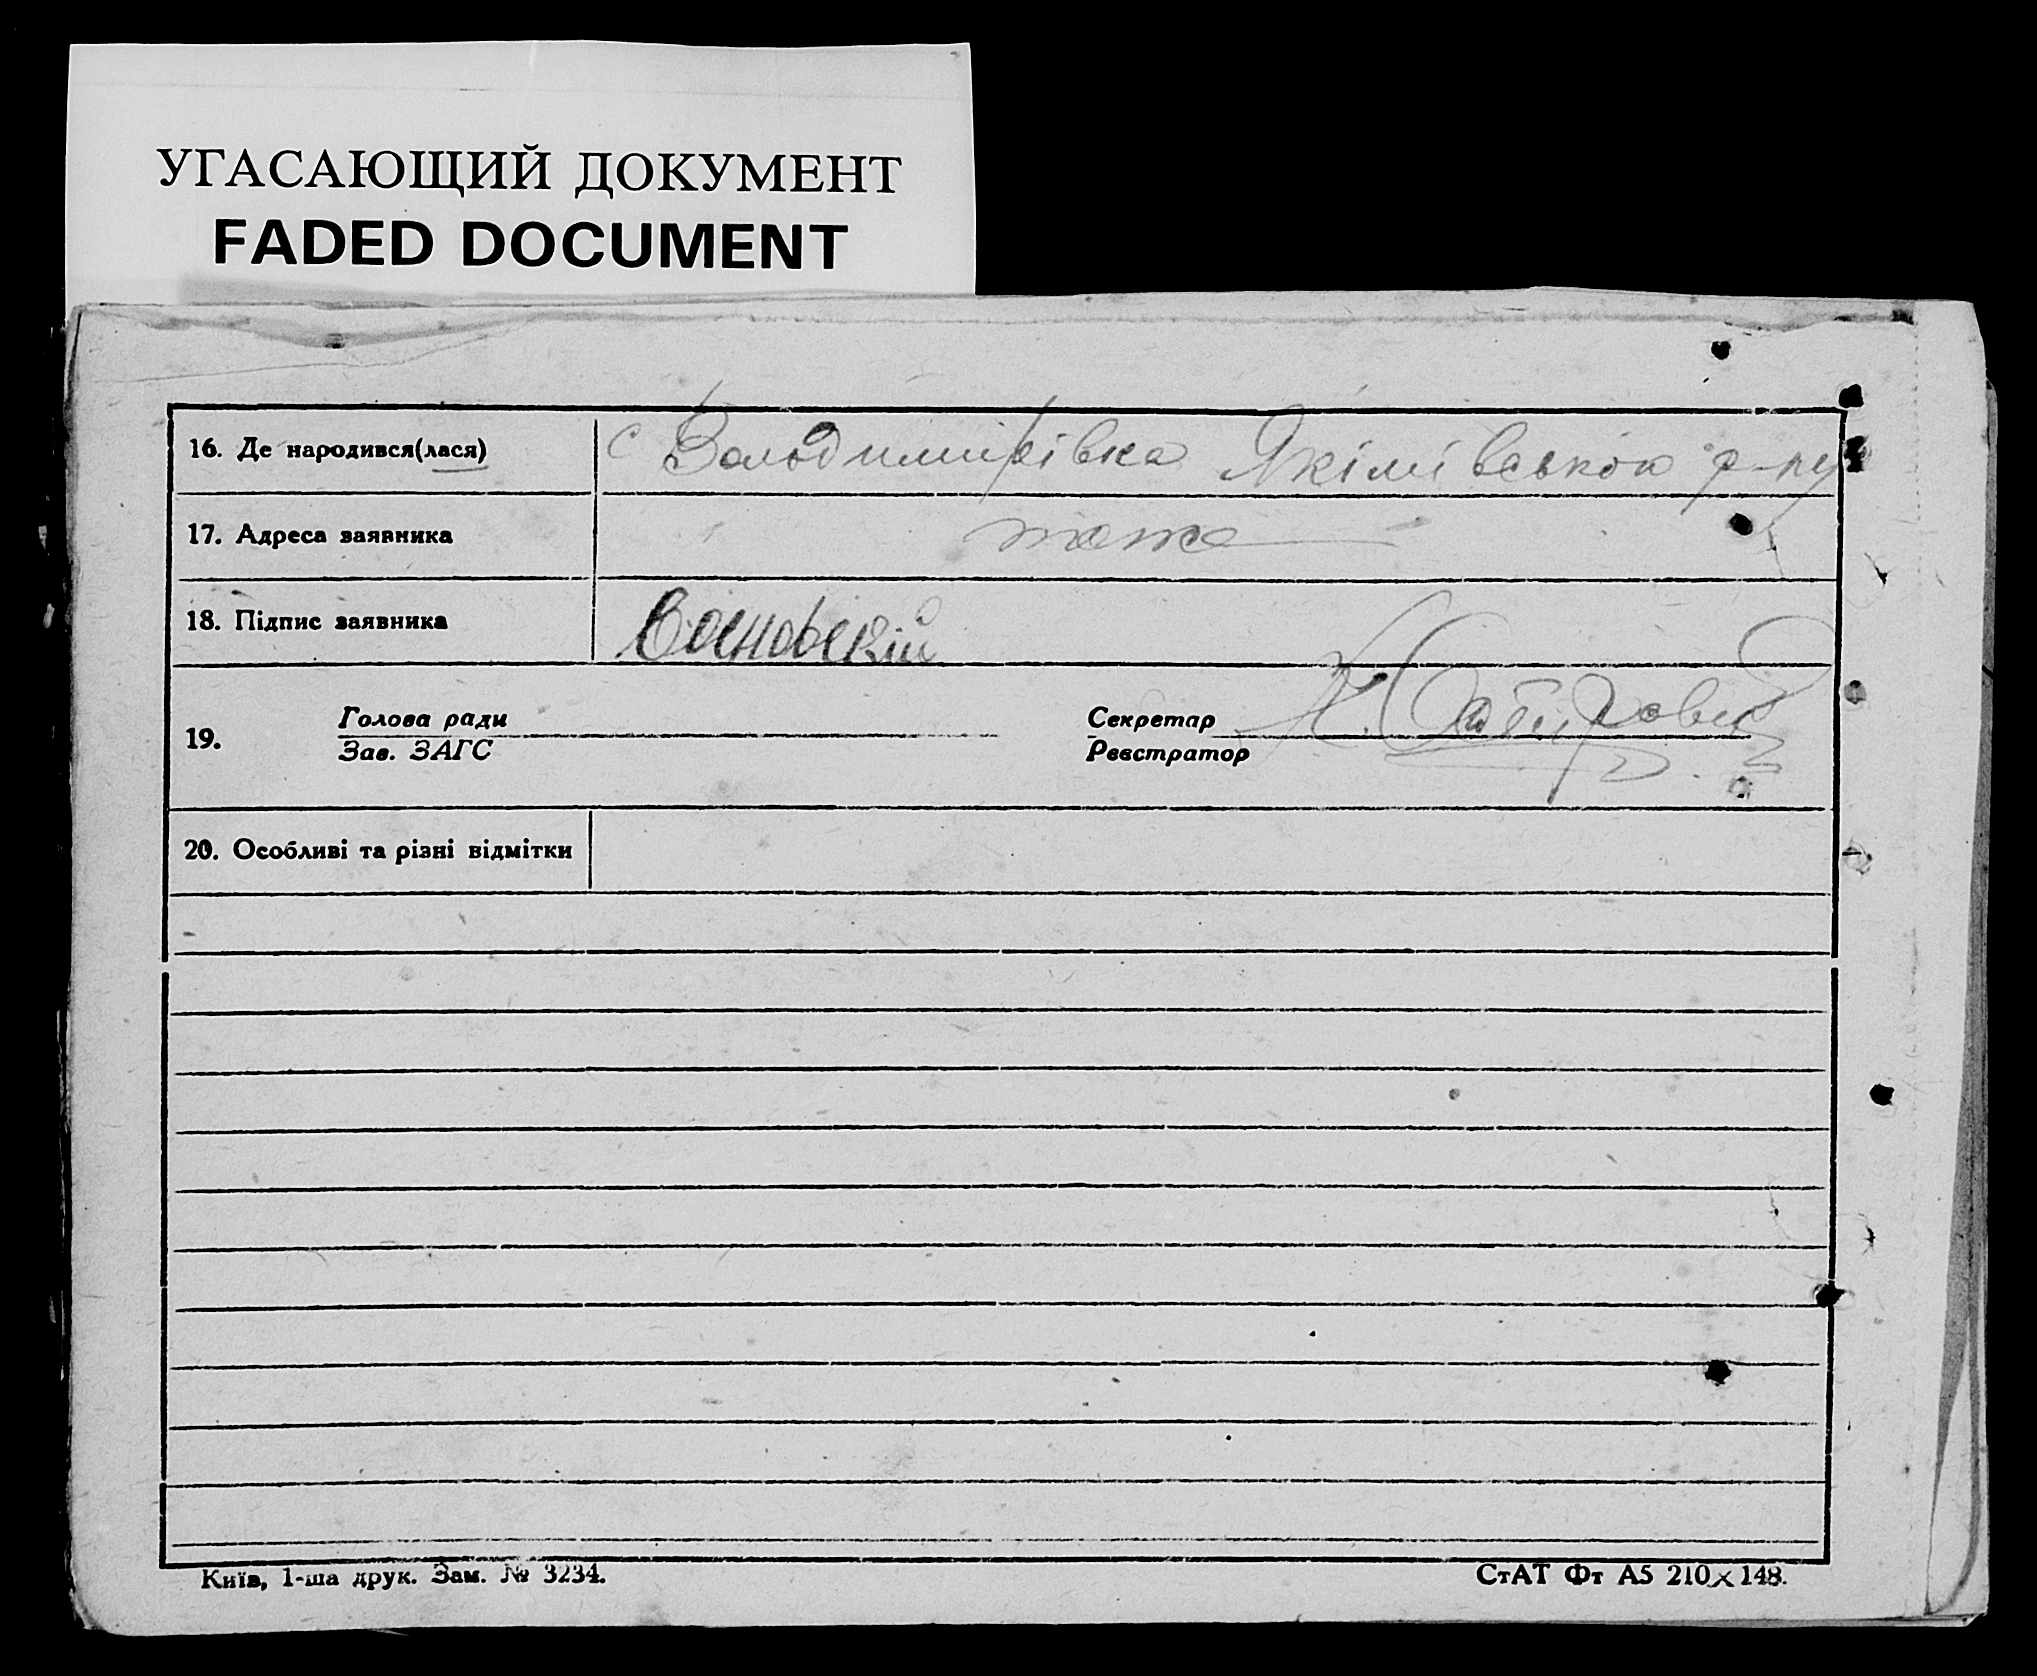 УГАСАЮЩИЙ ДОКУМЕНТ
FADED DOCUMENT
16. Де народився(лася) с Володимирівка Якімівського р-ну
17. Адреса заявника тоже
18. Підпис заявника Сосновский
19. Голова ради
Зав. ЗАГС
Секретар
Реєстратор
20. Особливі та різні відмітки
Київ, 1-ша друк. Зам. № 3234.
СтАТ Фт А5 210×148.